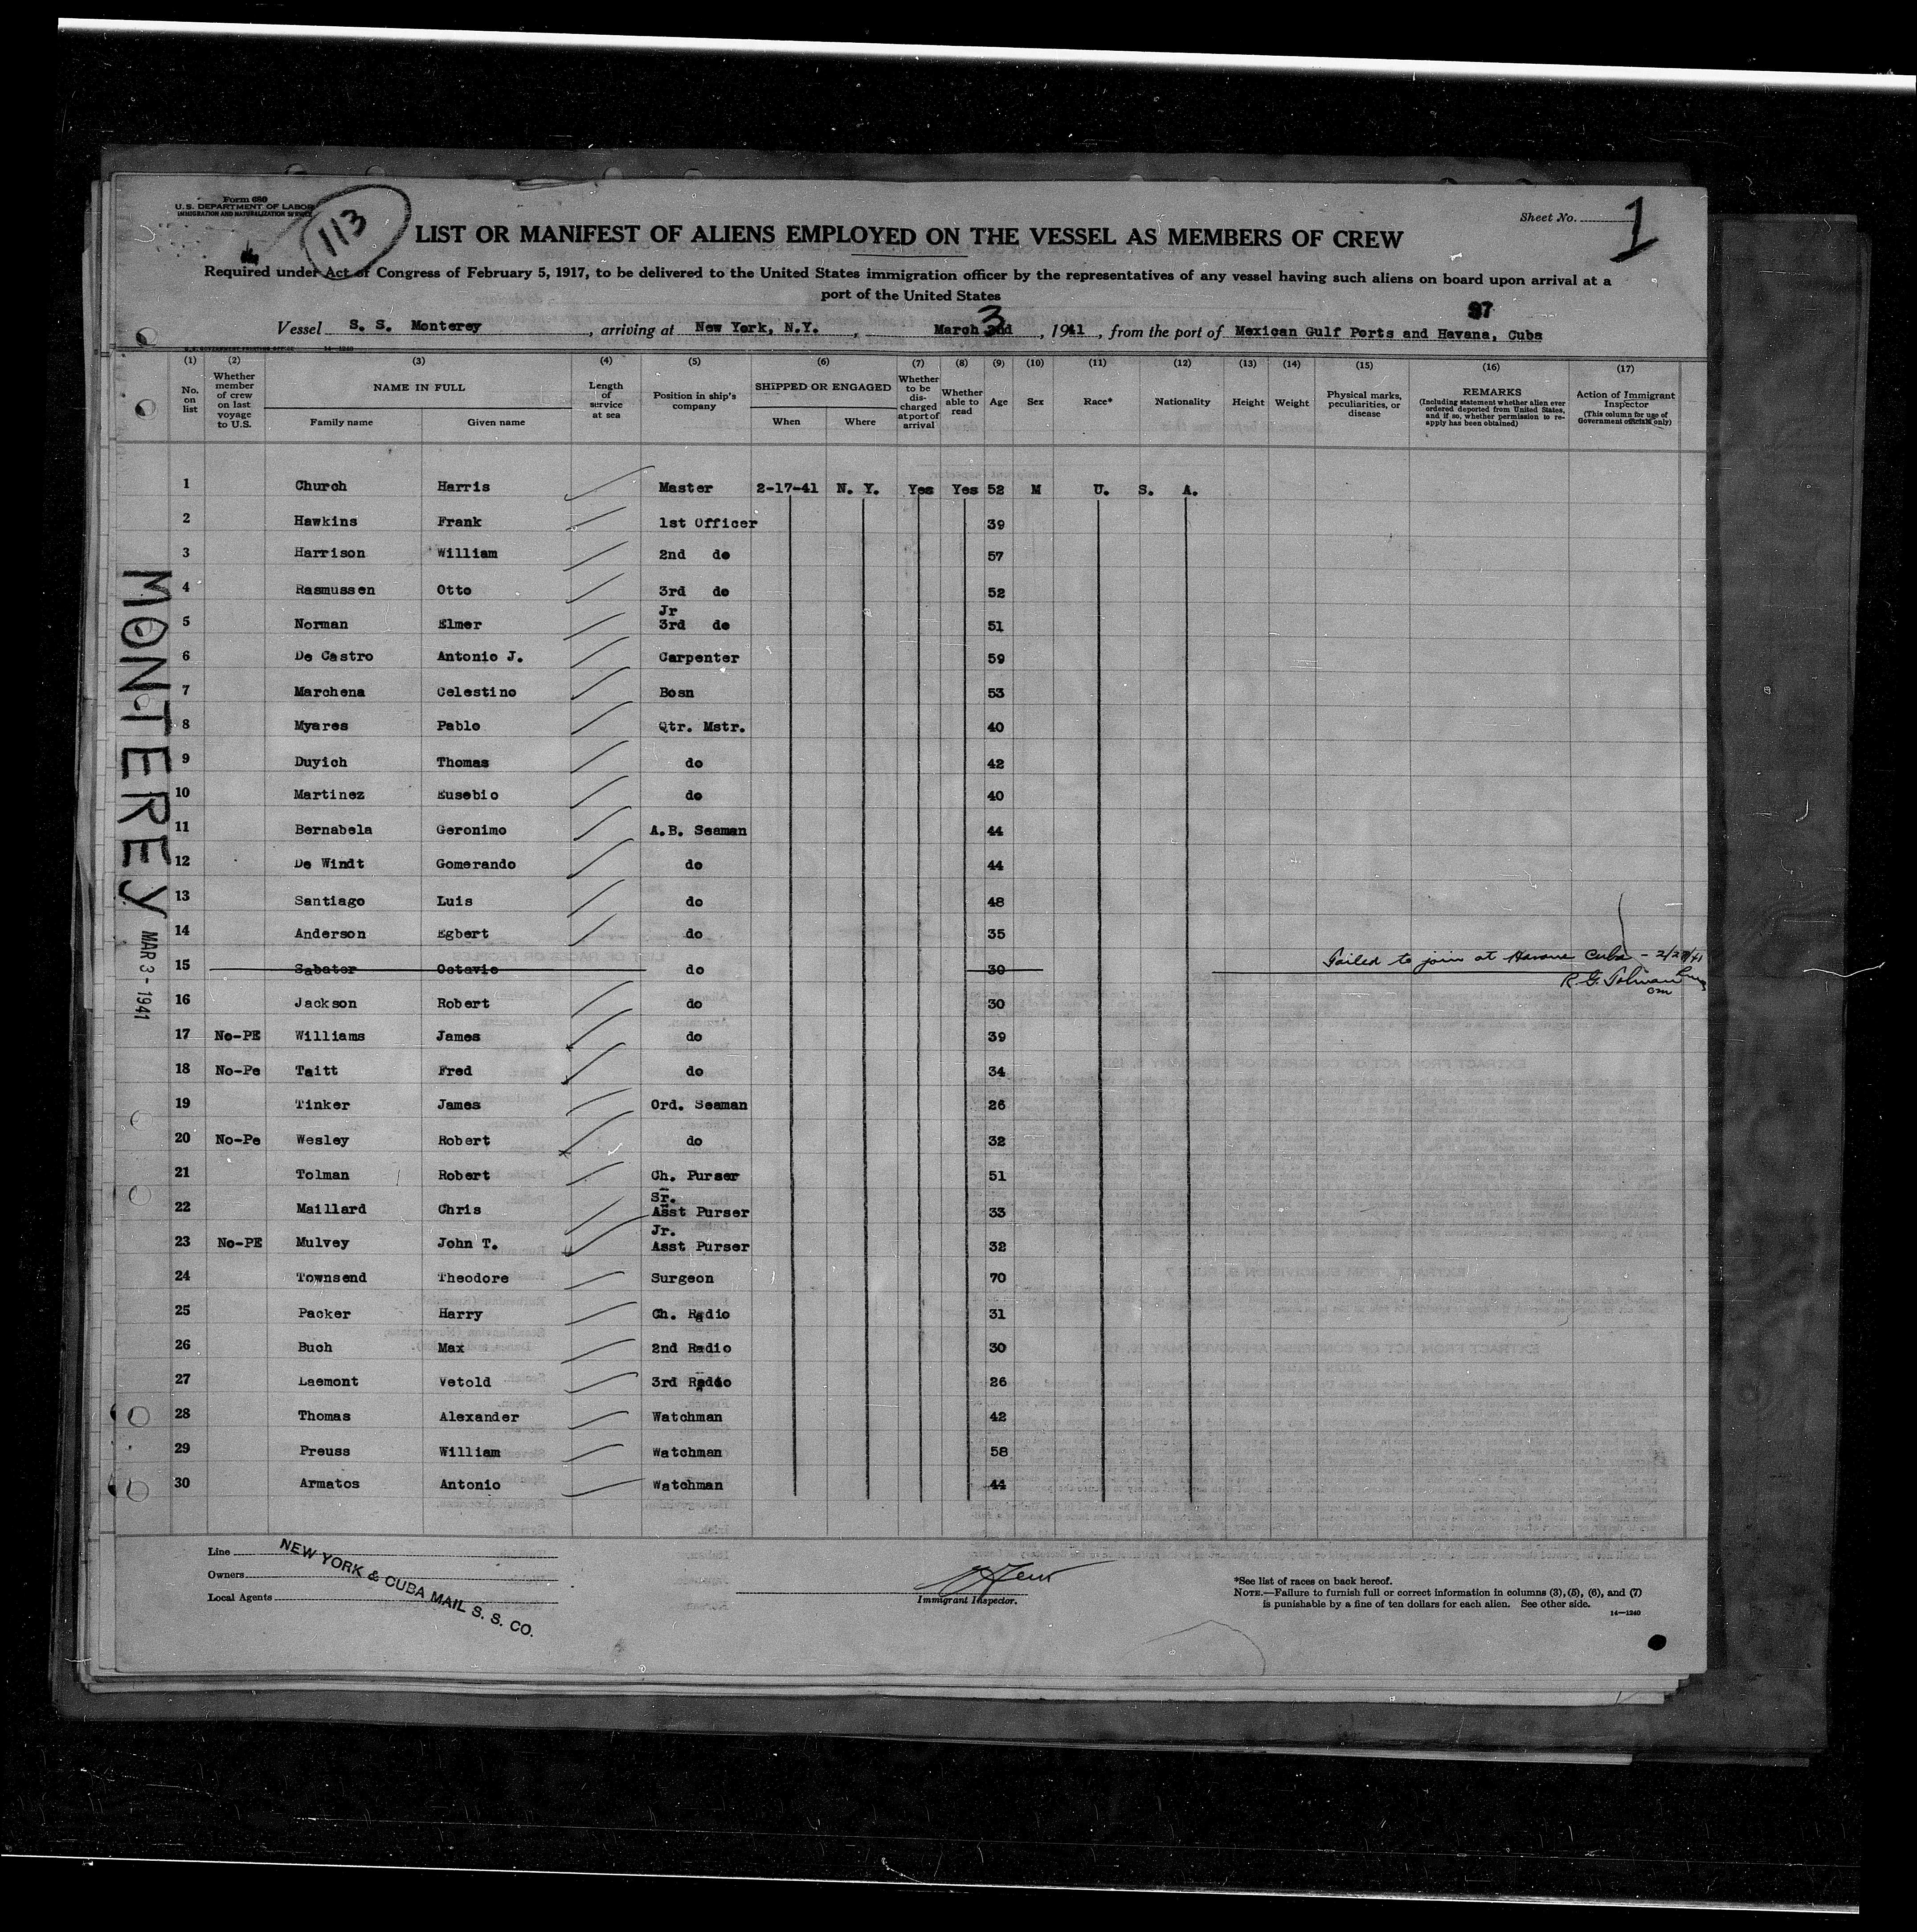 Form 680
U. S. DEPARTMENT OF LABOR
IMMIGRATION AND NATURALIZATION SERVICE
113
Sheet No. 1
LIST OR MANIFEST OF ALIENS EMPLOYED ON THE VESSEL AS MEMBERS OF CREW
Required under Act of Congress of February 5, 1917, to be delivered to the United States immigration officer by the representatives of any vessel having such aliens on board upon arrival at a
port of the United States
97
Vessel S. S. Monterey, arriving at New York, N.Y., March 3, 1941, from the port of Mexican Gulf Ports and Havana, Cuba
(1) (2) (3) (4) (5) (6) (7) (8) (9) (10) (11) (12) (13) (14) (15) (16) (17)
No. on list
Whether member of crew on last voyage to U.S.
NAME IN FULL
Family name
Given name
Length of service at sea
Position in ship's company
SHIPPED OR ENGAGED
When
Where
Whether to be discharged at port of arrival
Whether able to read
Age
Sex
Race*
Nationality
Height
Weight
Physical marks, peculiarities, or disease
REMARKS
(Including statement whether alien ever ordered deported from United States, and if so, whether permission to reapply has been obtained)
Action of Immigrant Inspector
(This column for use of Government officials only)
1 Church Harris Master 2-17-41 N. Y. Yes Yes 52 M U. S. A.
2 Hawkins Frank 1st Officer 39
3 Harrison William 2nd do 57
4 Rasmussen Otto 3rd do 52
5 Norman Elmer Jr 3rd do 51
6 De Castro Antonio J. Carpenter 59
7 Marchena Celestino Bosn 53
8 Myares Pablo Qtr. Mstr. 40
9 Duyich Thomas do 42
10 Martinez Eusebio do 40
11 Bernabela Geronimo A.B. Seaman 44
12 De Windt Gomerando do 44
13 Santiago Luis do 48
14 Anderson Egbert do 35
15 Sabater Octavio do 30 Failed to join at Havana Cuba - 2/28/41
R G. Tolman
16 Jackson Robert do 30
17 No-PE Williams James do 39
18 No-Pe Taitt Fred do 34
19 Tinker James Ord. Seaman 26
20 No-Pe Wesley Robert do 32
21 Tolman Robert Ch. Purser 51
22 Maillard Chris Sr. Asst Purser 33
23 No-PE Mulvey John T. Jr. Asst Purser 32
24 Townsend Theodore Surgeon 70
25 Packer Harry Ch. Radio 31
26 Buch Max 2nd Radio 30
27 Laemont Vetold 3rd Radio 26
28 Thomas Alexander Watchman 42
29 Preuss William Watchman 58
30 Armatos Antonio Watchman 44
MONTEREY
MAR 3 - 1941
Line
Owners
Local Agents
NEW YORK & CUBA MAIL S. S. CO.
Immigrant Inspector.
*See list of races on back hereof.
NOTE.—Failure to furnish full or correct information in columns (3), (5), (6), and (7)
is punishable by a fine of ten dollars for each alien. See other side.
14—1240